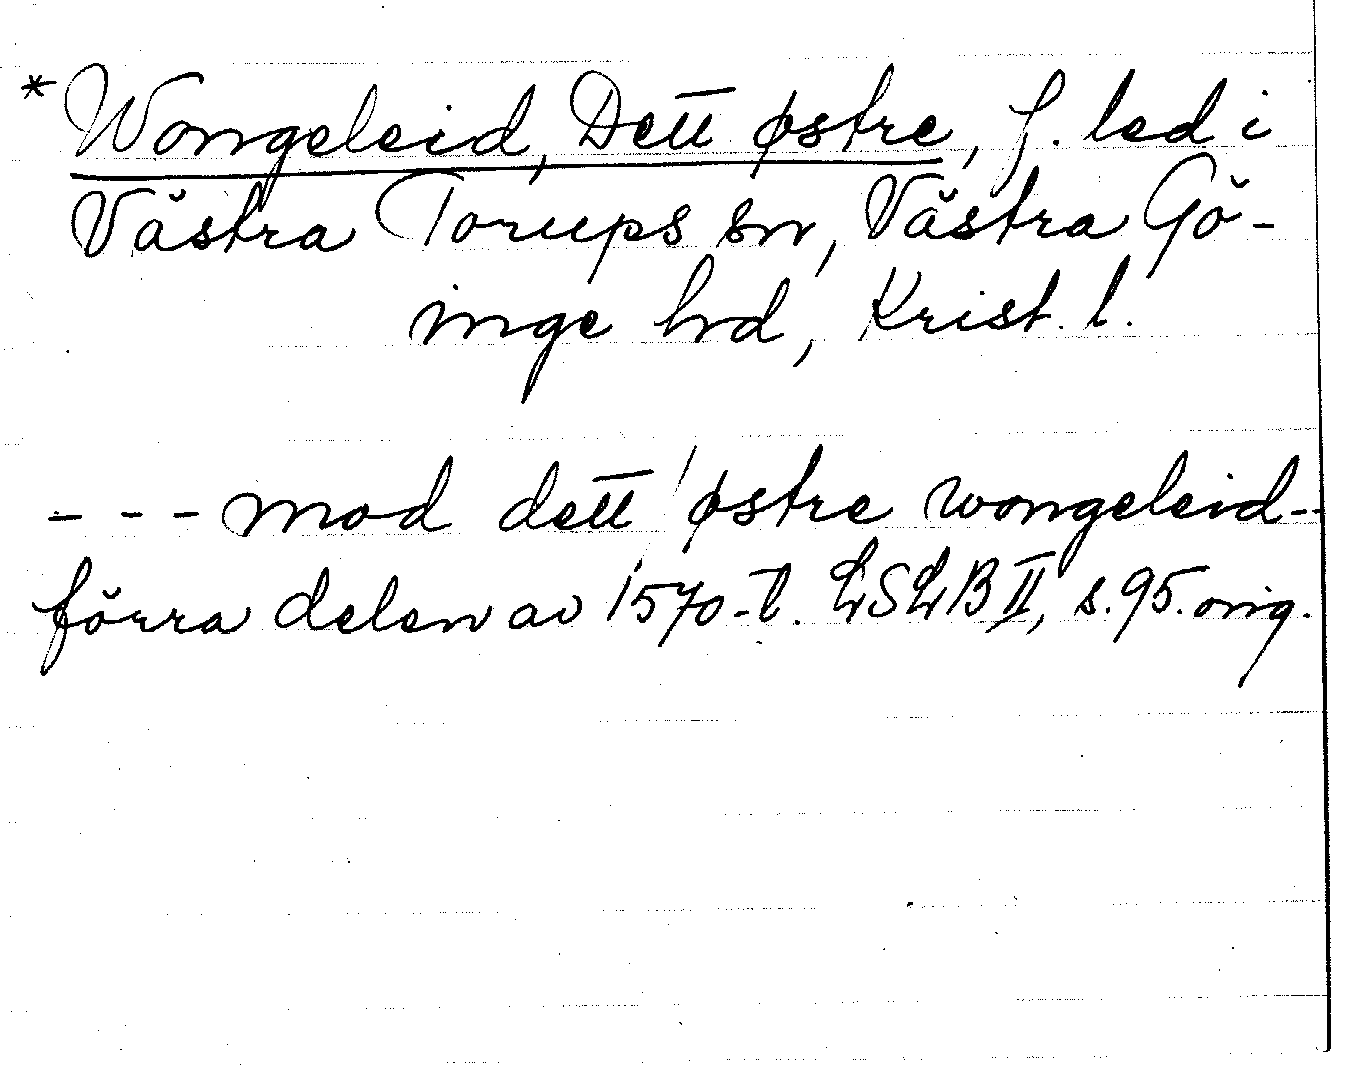 *Wongeleid, Dett østre, f. led i
Västra Torups sn, Västra Gö-
inge hd, Krist. l.
--- mod dett østre wongeleid--
förra delen av 1570-t. LSLB II, s. 95. orig.